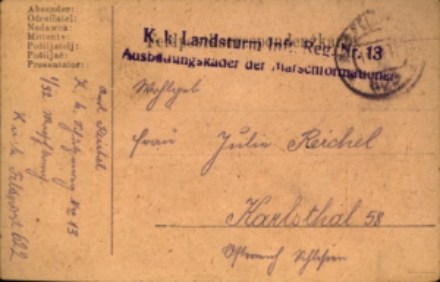 Absender:
Odesílatel:
Nadawca:
Mittente:
Pošiljatelj:
Pošiljač:
Presentator:
K. k. Landsturm Inf. Reg. Nr. 13
Ausbildungskader der Marschformationen
Wohlgeb
Frau Julie Reichel
Karlsthal 58
Österreich Schlesien
Reichel
K. k. Nr 13
K. u. k. Feldpost 622